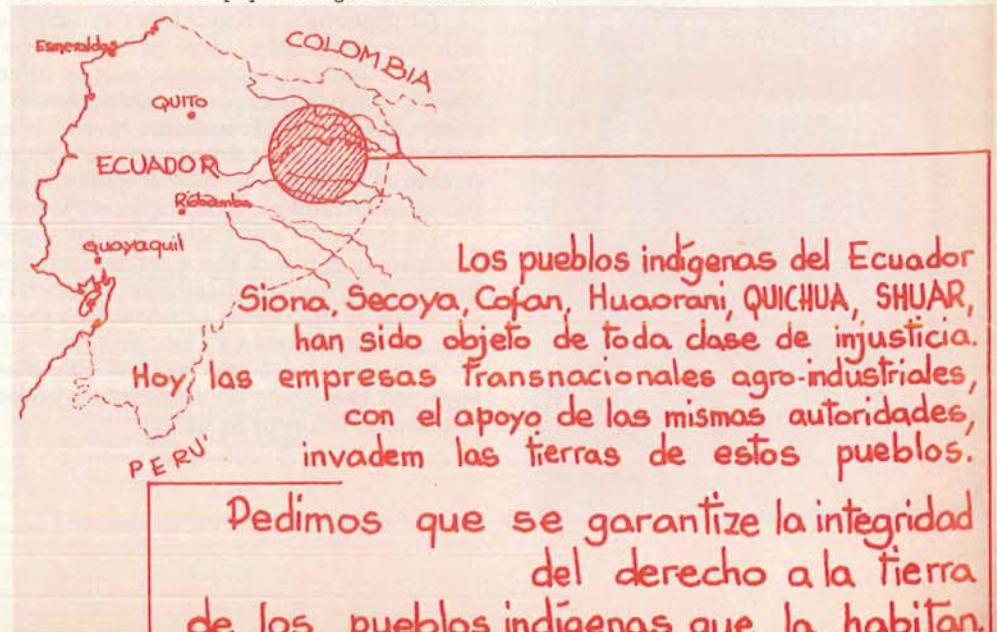 Esmeraldas
COLOMBIA
QUITO
ECUADOR
Riobamba
Guayaquil
PERU'
Los pueblos indígenas del Ecuador
Siona, Secoya, Cofan, Huaorani, QUICHUA, SHUAR,
han sido objeto de toda clase de injusticia.
Hoy, las empresas transnacionales agro-industriales,
con el apoyo de las mismas autoridades,
invadem las tierras de estos pueblos.
Pedimos que se garantize la integridad
del derecho a la tierra
de los pueblos indígenas que la habitan.